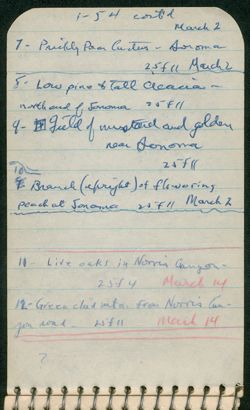 1-54 cont'd
March 2
7- Prickly Pear Cactus - Sonoma
25 f 11 March 2
8- Low pine & tall acacia -
north end of Sonoma 25 f 11
9- Field of mustard and golden
near Sonoma
25 f 11
10-
Branch (upright) of flowering
peach at Sonoma 25 f 11 March 2
11- Live oaks in Norris Canyon -
25 f 4 March 14
12- Green clad from Norris Can-
yon road - 25 f 11 March 14
?